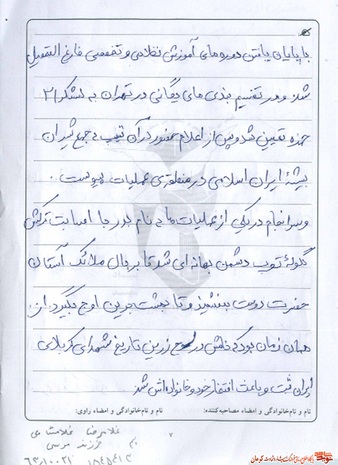 با پایان یافتن دوره های آموزش نظامی و تخصصی فارغ التحصیل
شد و در تقسیم بندی های یگانی در تهران به لشکر ۲۱
حمزه تعیین شد و پس از اعلام حضور در آن تیپ به جمع شیران
بیشهٔ ایران اسلامی در منطقه ی عملیات پیوست .
و سرانجام در یکی از عملیات ها به نام بدر با اصابت ترکش
گلولهٔ توپ دشمن بهانه ای شد تا بر بال ملائک آستان
حضرت دوست بنشیند و تا بهشت برین اوج بگیرد . از
همان زمان بود که نامش در لوح زرین تاریخ شهدای کربلای
ایران ثبت و باعث افتخار خود و خانواده اش شد
نام و نام خانوادگی و امضاء مصاحبه کننده: نام و نام خانوادگی و امضاء راوی:
غلامرضا غلامشاهی
۷